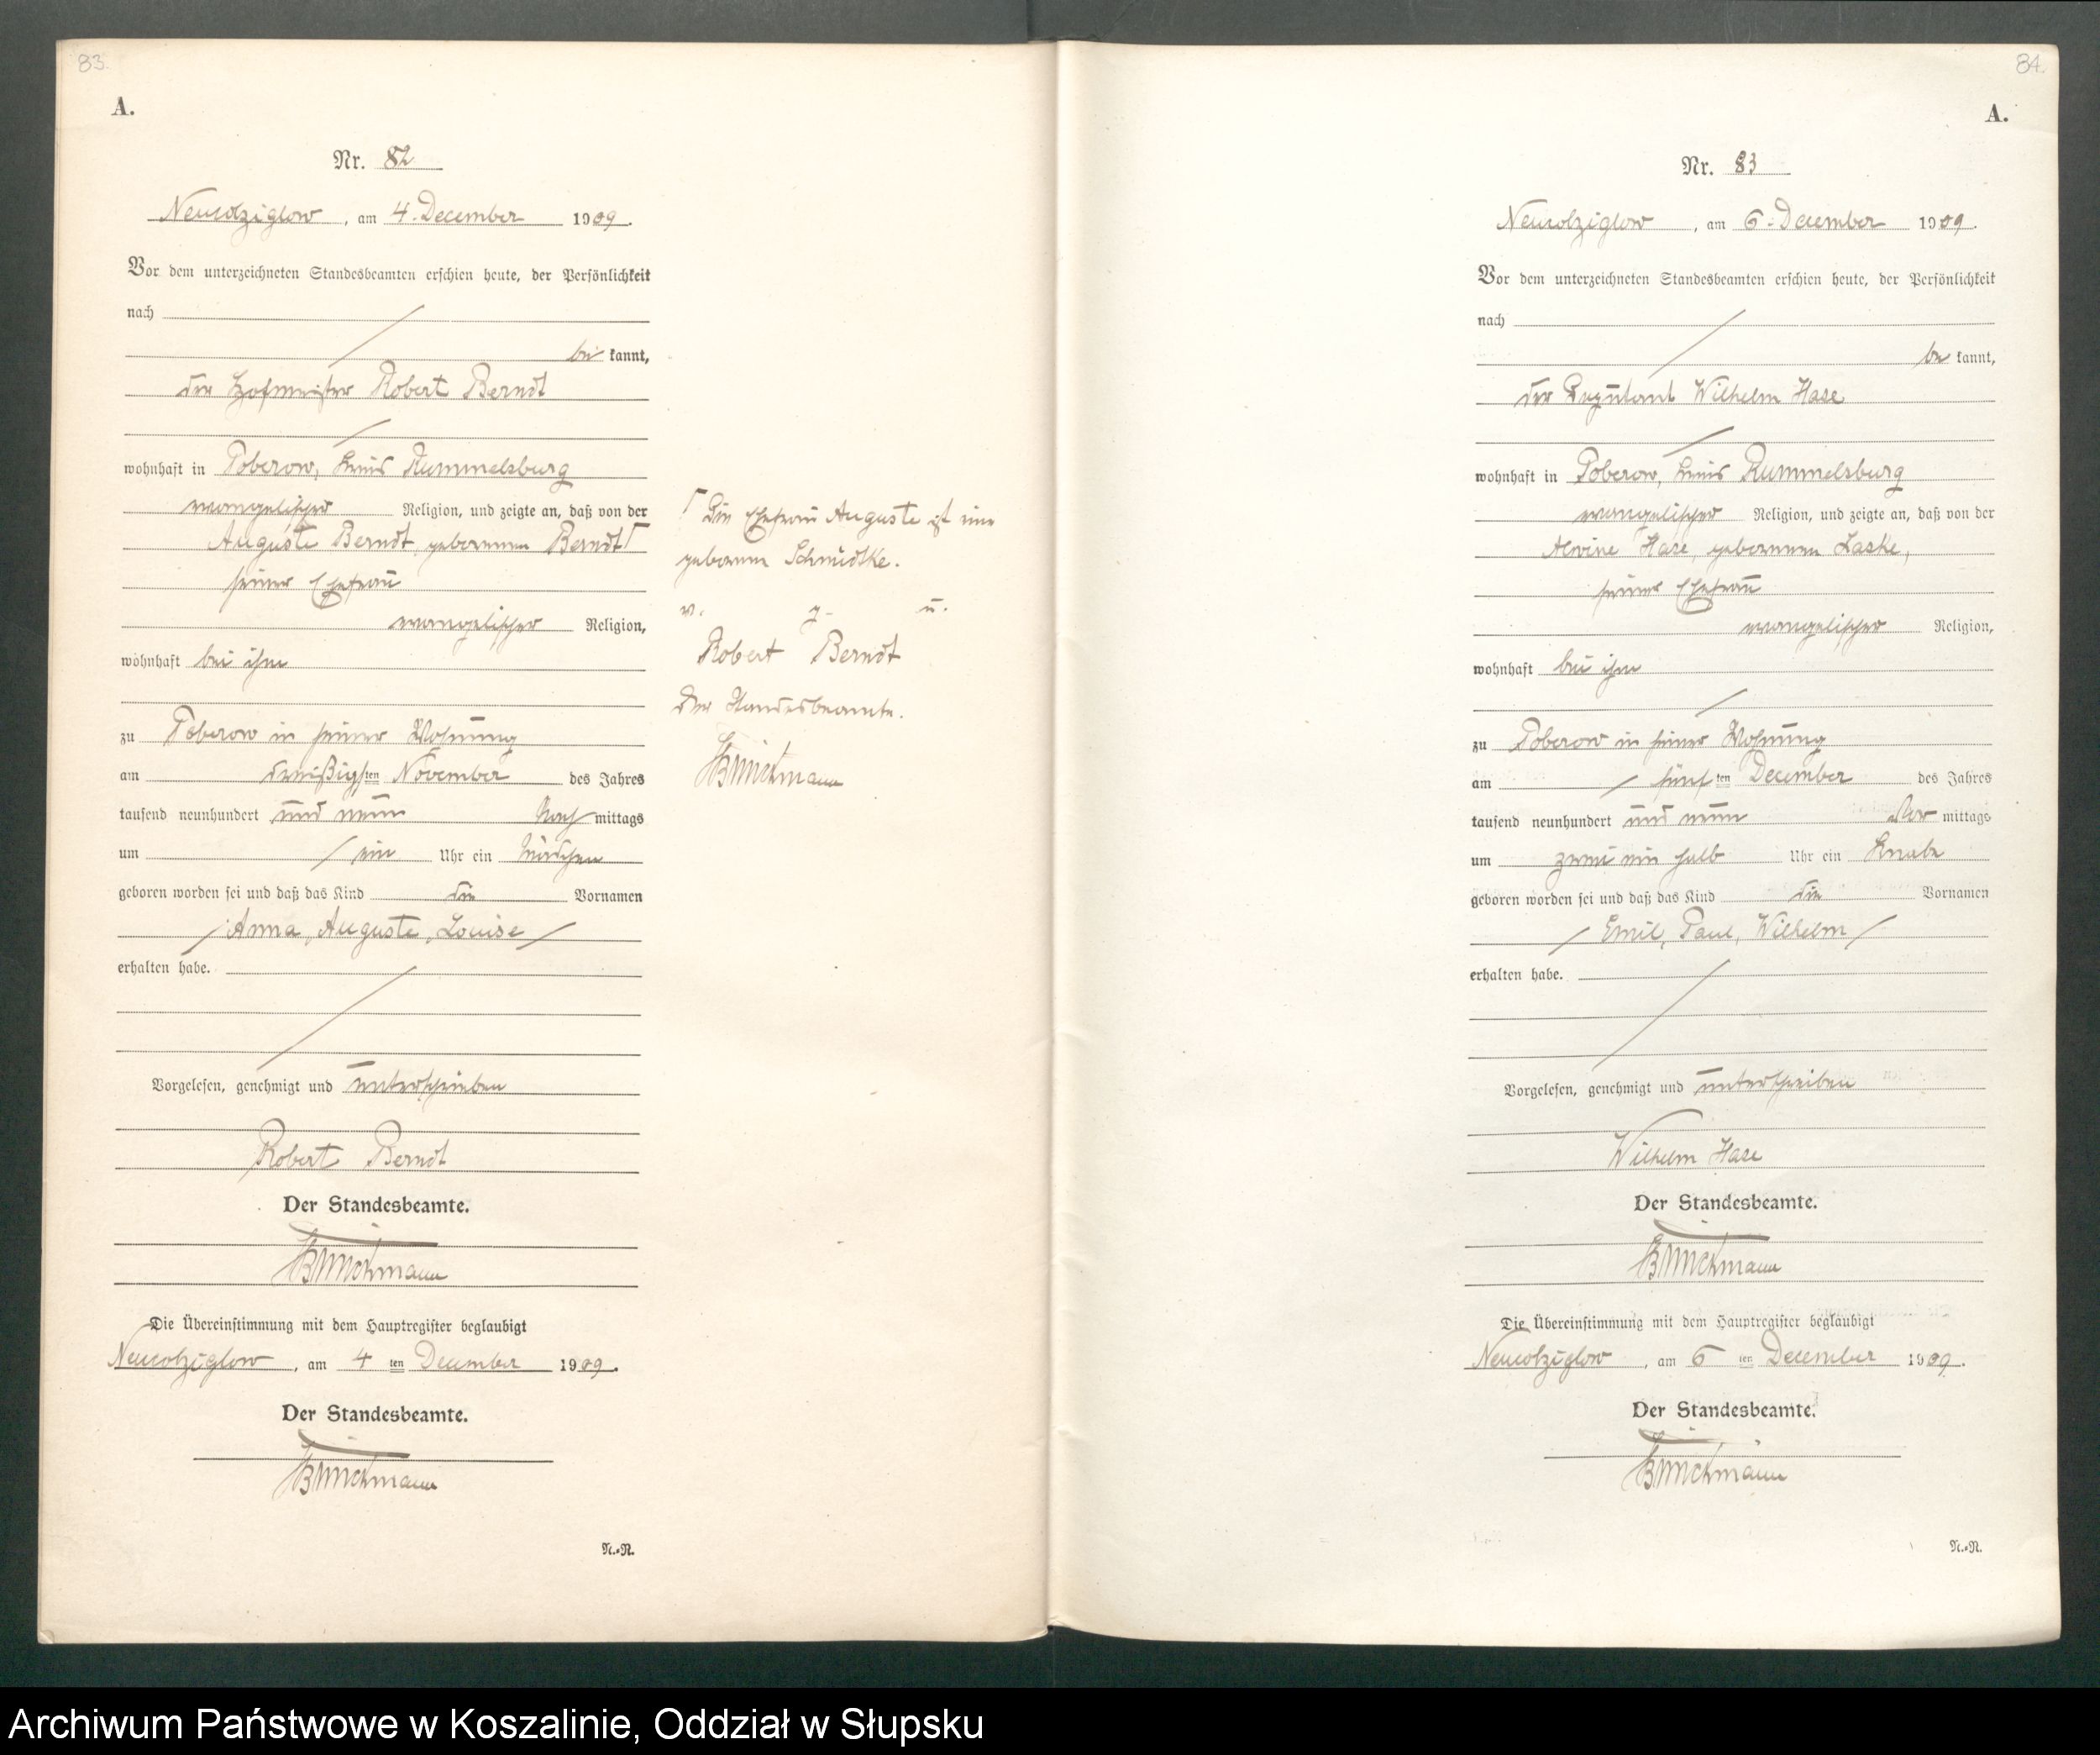 83.
A.
Nr. 82
Neukolziglow, am 4. December 1909.
Vor dem unterzeichneten Standesbeamten erschien heute, der Persönlichkeit
nach
be kannt,
der Hofmeister Robert Berndt
wohnhaft in Poberow, Kreis Rummelsburg
evangelischer Religion, und zeigte an, daß von der
Auguste Berndt, geborenen Berndt Γ
seiner Ehefrau
evangelischer Religion,
wohnhaft bei ihm
zu Poberow in seiner Wohnung
am dreißigsten November des Jahres
tausend neunhundert und neun Nach mittags
um ein Uhr ein Mädchen
geboren worden sei und daß das Kind die Vornamen
Anna, Auguste, Louise
erhalten habe.
Vorgelesen, genehmigt und unterschrieben
Robert Berndt
Der Standesbeamte.
Die Übereinstimmung mit dem Hauptregister beglaubigt
Neukolziglow, am 4 ten December 1909.
Der Standesbeamte.
N.=R.
Γ Die Ehefrau Auguste ist eine
geborene Schmidtke.
v. g. u.
Robert Berndt
Der Standesbeamte.
84.
A.
Nr. 83
Neukolziglow, am 6. December 1909.
Vor dem unterzeichneten Standesbeamten erschien heute, der Persönlichkeit
nach
be kannt,
der Deputant Wilhelm Hase
wohnhaft in Poberow, Kreis Rummelsburg
evangelischer Religion, und zeigte an, daß von der
Alwine Hase, geborenen Laske,
seiner Ehefrau
evangelischer Religion,
wohnhaft bei ihm
zu Poberow in seiner Wohnung
am fünf ten December des Jahres
tausend neunhundert und neun Vor mittags
um zwei ein halb Uhr ein Knabe
geboren worden sei und daß das Kind die Vornamen
Emil, Paul, Wilhelm
erhalten habe.
Vorgelesen, genehmigt und unterschrieben
Wilhelm Hase
Der Standesbeamte.
Die Übereinstimmung mit dem Hauptregister beglaubigt
Neukolziglow, am 6 ten December 1909.
Der Standesbeamte.
N.=R.
Archiwum Państwowe w Koszalinie, Oddział w Słupsku